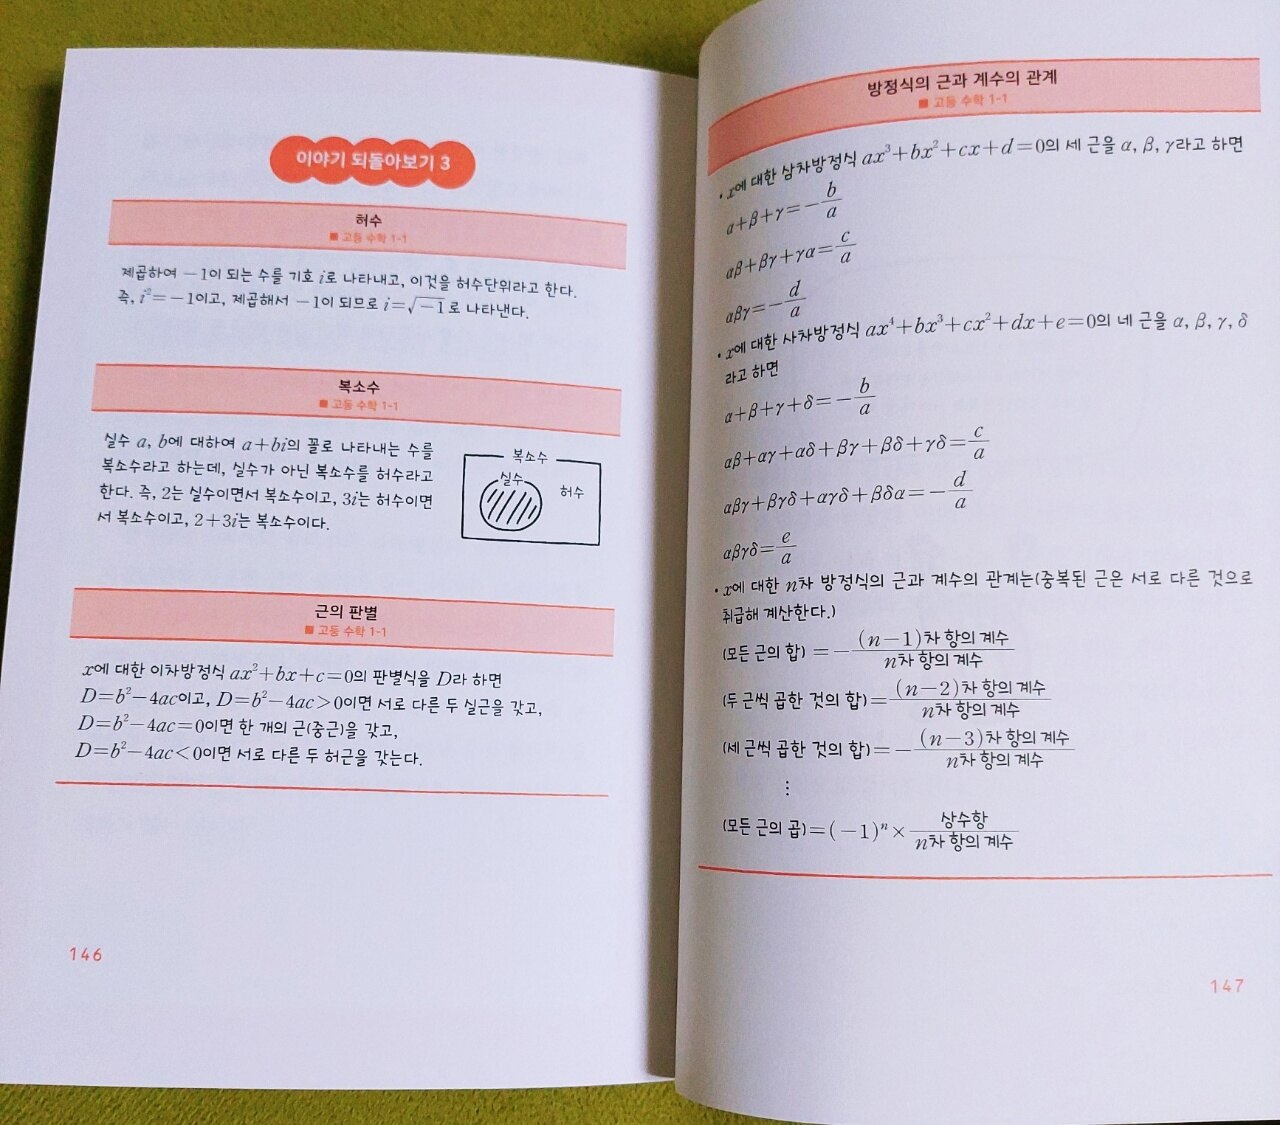 이야기 되돌아보기 3
허수
■ 고등 수학 1-1
제곱하여 −1이 되는 수를 기호 i로 나타내고, 이것을 허수단위라고 한다.
즉, i²=−1이고, 제곱해서 −1이 되므로 i=√−1로 나타낸다.
복소수
■ 고등 수학 1-1
실수 a, b에 대하여 a+bi의 꼴로 나타내는 수를
복소수라고 하는데, 실수가 아닌 복소수를 허수라고
한다. 즉, 2는 실수이면서 복소수이고, 3i는 허수이면
서 복소수이고, 2+3i는 복소수이다.
복소수
실수
허수
근의 판별
■ 고등 수학 1-1
x에 대한 이차방정식 ax²+bx+c=0의 판별식을 D라 하면
D=b²−4ac이고, D=b²−4ac>0이면 서로 다른 두 실근을 갖고,
D=b²−4ac=0이면 한 개의 근(중근)을 갖고,
D=b²−4ac<0이면 서로 다른 두 허근을 갖는다.
146
방정식의 근과 계수의 관계
■ 고등 수학 1-1
• x에 대한 삼차방정식 ax³+bx²+cx+d=0의 세 근을 α, β, γ라고 하면
α+β+γ=−b/a
αβ+βγ+γα=c/a
αβγ=−d/a
• x에 대한 사차방정식 ax⁴+bx³+cx²+dx+e=0의 네 근을 α, β, γ, δ
라고 하면
α+β+γ+δ=−b/a
αβ+αγ+αδ+βγ+βδ+γδ=c/a
αβγ+βγδ+αγδ+βδα=−d/a
αβγδ=e/a
• x에 대한 n차 방정식의 근과 계수의 관계는(중복된 근은 서로 다른 것으로
취급해 계산한다.)
(모든 근의 합)=−(n−1)차 항의 계수/n차 항의 계수
(두 근씩 곱한 것의 합)=(n−2)차 항의 계수/n차 항의 계수
(세 근씩 곱한 것의 합)=−(n−3)차 항의 계수/n차 항의 계수
⋮
(모든 근의 곱)=(−1)ⁿ×상수항/n차 항의 계수
147